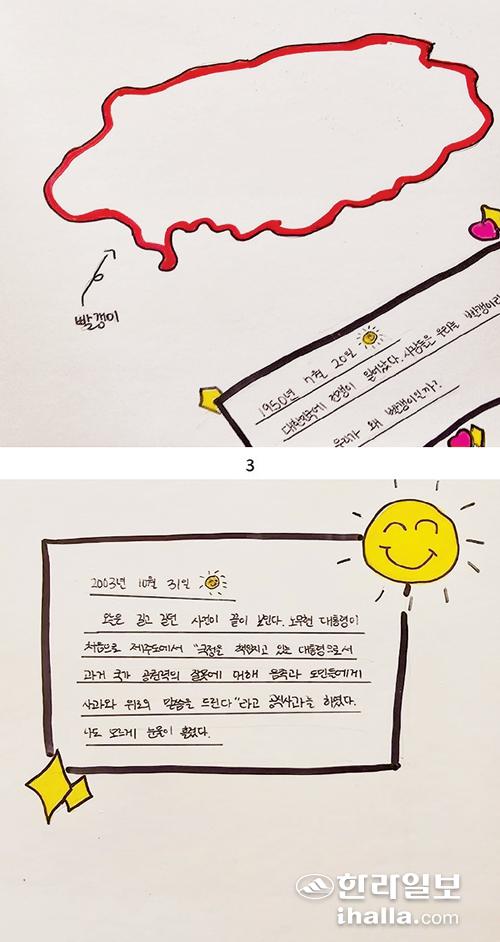 빨갱이
1950년 7월 20일
대한민국에 전쟁이 일어났다. 사람들은 우리를 빨갱이라
우리가 왜 빨갱이일까?
3
2003년 10월 31일
오늘은 길고 길던 사건이 끝이 났다. 노무현 대통령이
처음으로 제주도에서 "국정을 책임지고 있는 대통령으로서
과거 국가 공권력의 잘못에 대해 유족과 도민들에게
사과와 위로의 말씀을 드린다"라고 공식사과를 하였다.
나도 모르게 눈물이 흘렀다.
한라일보
ihalla.com